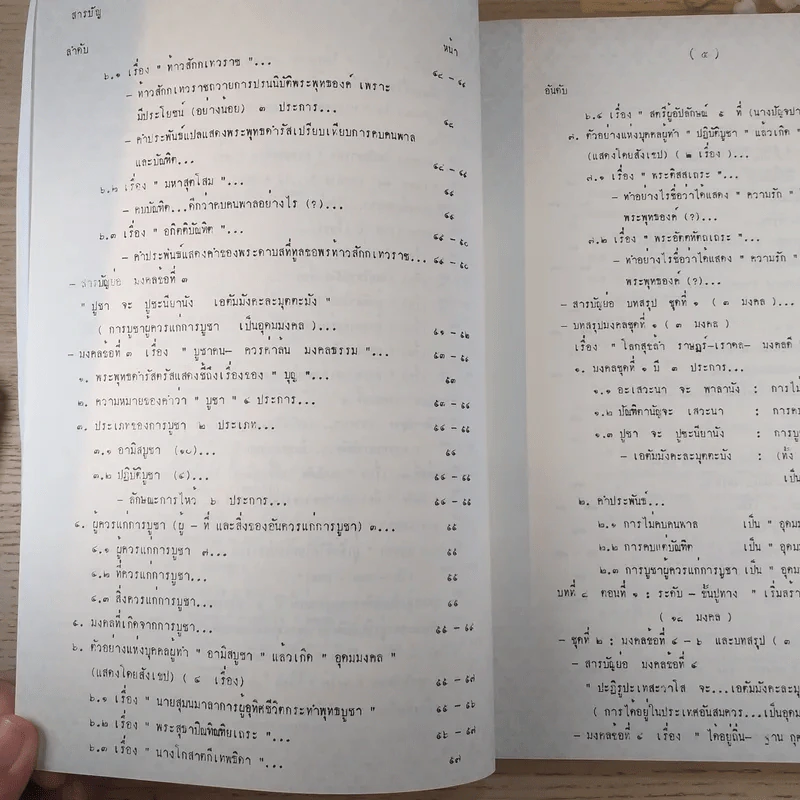 สารบัญ
ลำดับ หน้า
๖.๑ เรื่อง " ท้าวสักกเทวราช "...
- ท้าวสักกเทวราชถวายการปรนนิบัติพระพุทธองค์ เพราะ
มีประโยชน์ (อย่างน้อย) ๓ ประการ...
- คำประพันธ์แปลแสดงพระพุทธดำรัสเปรียบเทียบการคบคนพาล
และบัณฑิต...
๖.๒ เรื่อง " มหาสุตโสม "...
- คบบัณฑิต...ดีกว่าคบคนพาลอย่างไร (?)...
๖.๓ เรื่อง " อกิตติบัณฑิต "...
- คำประพันธ์แสดงคำของพระดาบสที่ทูลขอพรท้าวสักกเทวราช...
- สารบัญย่อ มงคลข้อที่ ๓
" ปูชา จะ ปูชะนียานัง เอตัมมังคะละมุตตะมัง "
( การบูชาผู้ควรแก่การบูชา เป็นอุดมมงคล )...
- มงคลข้อที่ ๓ เรื่อง " บูชาคน- ควรค่าล้น มงคลธรรม "...
๑. พระพุทธดำรัสตรัสแสดงชี้ถึงเรื่องของ " บุญ "...
๒. ความหมายของคำว่า " บูชา " ๔ ประการ...
๓. ประเภทของการบูชา ๒ ประเภท...
๓.๑ อามิสบูชา (๑๘)...
๓.๒ ปฏิบัติบูชา (๔)...
- ลักษณะการไหว้ ๖ ประการ...
๔. ผู้ควรแก่การบูชา (ผู้ - ที่ และสิ่งของอันควรแก่การบูชา) ๓...
๔.๑ ผู้ควรแก่การบูชา ๗...
๔.๒ ที่ควรแก่การบูชา...
๔.๓ สิ่งควรแก่การบูชา...
๕. มงคลที่เกิดจากการบูชา...
๖. ตัวอย่างแห่งบุคคลผู้ทำ " อามิสบูชา " แล้วเกิด " อุดมมงคล "
(แสดงโดยสังเขป) ( ๔ เรื่อง)
๖.๑ เรื่อง " นายสุมนมาลาการผู้อุทิศชีวิตกระทำพุทธบูชา "
๖.๒ เรื่อง " พระสุธาปิณฑิยเถระ "...
๖.๓ เรื่อง " นางโกสาตกีเทพธิดา "...
( ๕ )
อันดับ
๖.๔ เรื่อง " สตรีผู้อัปลักษณ์ ๕ ที่ (นางปัญจปา
๗. ตัวอย่างแห่งบุคคลผู้ทำ " ปฏิบัติบูชา " แล้วเกิด "
(แสดงโดยสังเขป) ( ๒ เรื่อง )...
๗.๑ เรื่อง " พระติสสเถระ "...
- ทำอย่างไรชื่อว่าได้แสดง " ความรัก "
พระพุทธองค์ (?)...
๗.๒ เรื่อง " พระอัตตทัตถเถระ "...
- ทำอย่างไรชื่อว่าได้แสดง " ความรัก "
พระพุทธองค์ (?)...
- สารบัญย่อ บทสรุป ชุดที่ ๑ ( ๓ มงคล )...
- บทสรุปมงคลชุดที่ ๑ ( ๓ มงคล )
เรื่อง " โลกสุขล้ำ ราษฎร์-เราดล- มงคลดี
๑. มงคลชุดที่ ๑ มี ๓ ประการ...
๑.๑ อะเสวะนา จะ พาลานัง : การไม่
๑.๒ บัณฑิตานัญจะ เสวะนา : การค
๑.๓ ปูชา จะ ปูชะนียานัง : การบู
- เอตัมมังคะละมุตตะมัง : (ทั้ง
เป็น
๒. คำประพันธ์...
๒.๑ การไม่คบคนพาล เป็น " อุดม
๒.๒ การคบแต่บัณฑิต เป็น " อุดม
๒.๓ การบูชาผู้ควรแก่การบูชา เป็น " อุดม
บทที่ ๔ ตอนที่ ๑ : ระดับ - ขั้นปูทาง " เริ่มสร้า
( ๑๘ มงคล )
- ชุดที่ ๒ : มงคลข้อที่ ๔ - ๖ และบทสรุป ( ๓
- สารบัญย่อ มงคลข้อที่ ๔
" ปะฏิรูปะเทสะวาโส จะ...เอตัมมังคะละมุ
( การได้อยู่ในประเทศอันสมควร...เป็นอุดม
- มงคลข้อที่ ๔ เรื่อง " ได้อยู่ถิ่น- ฐาน